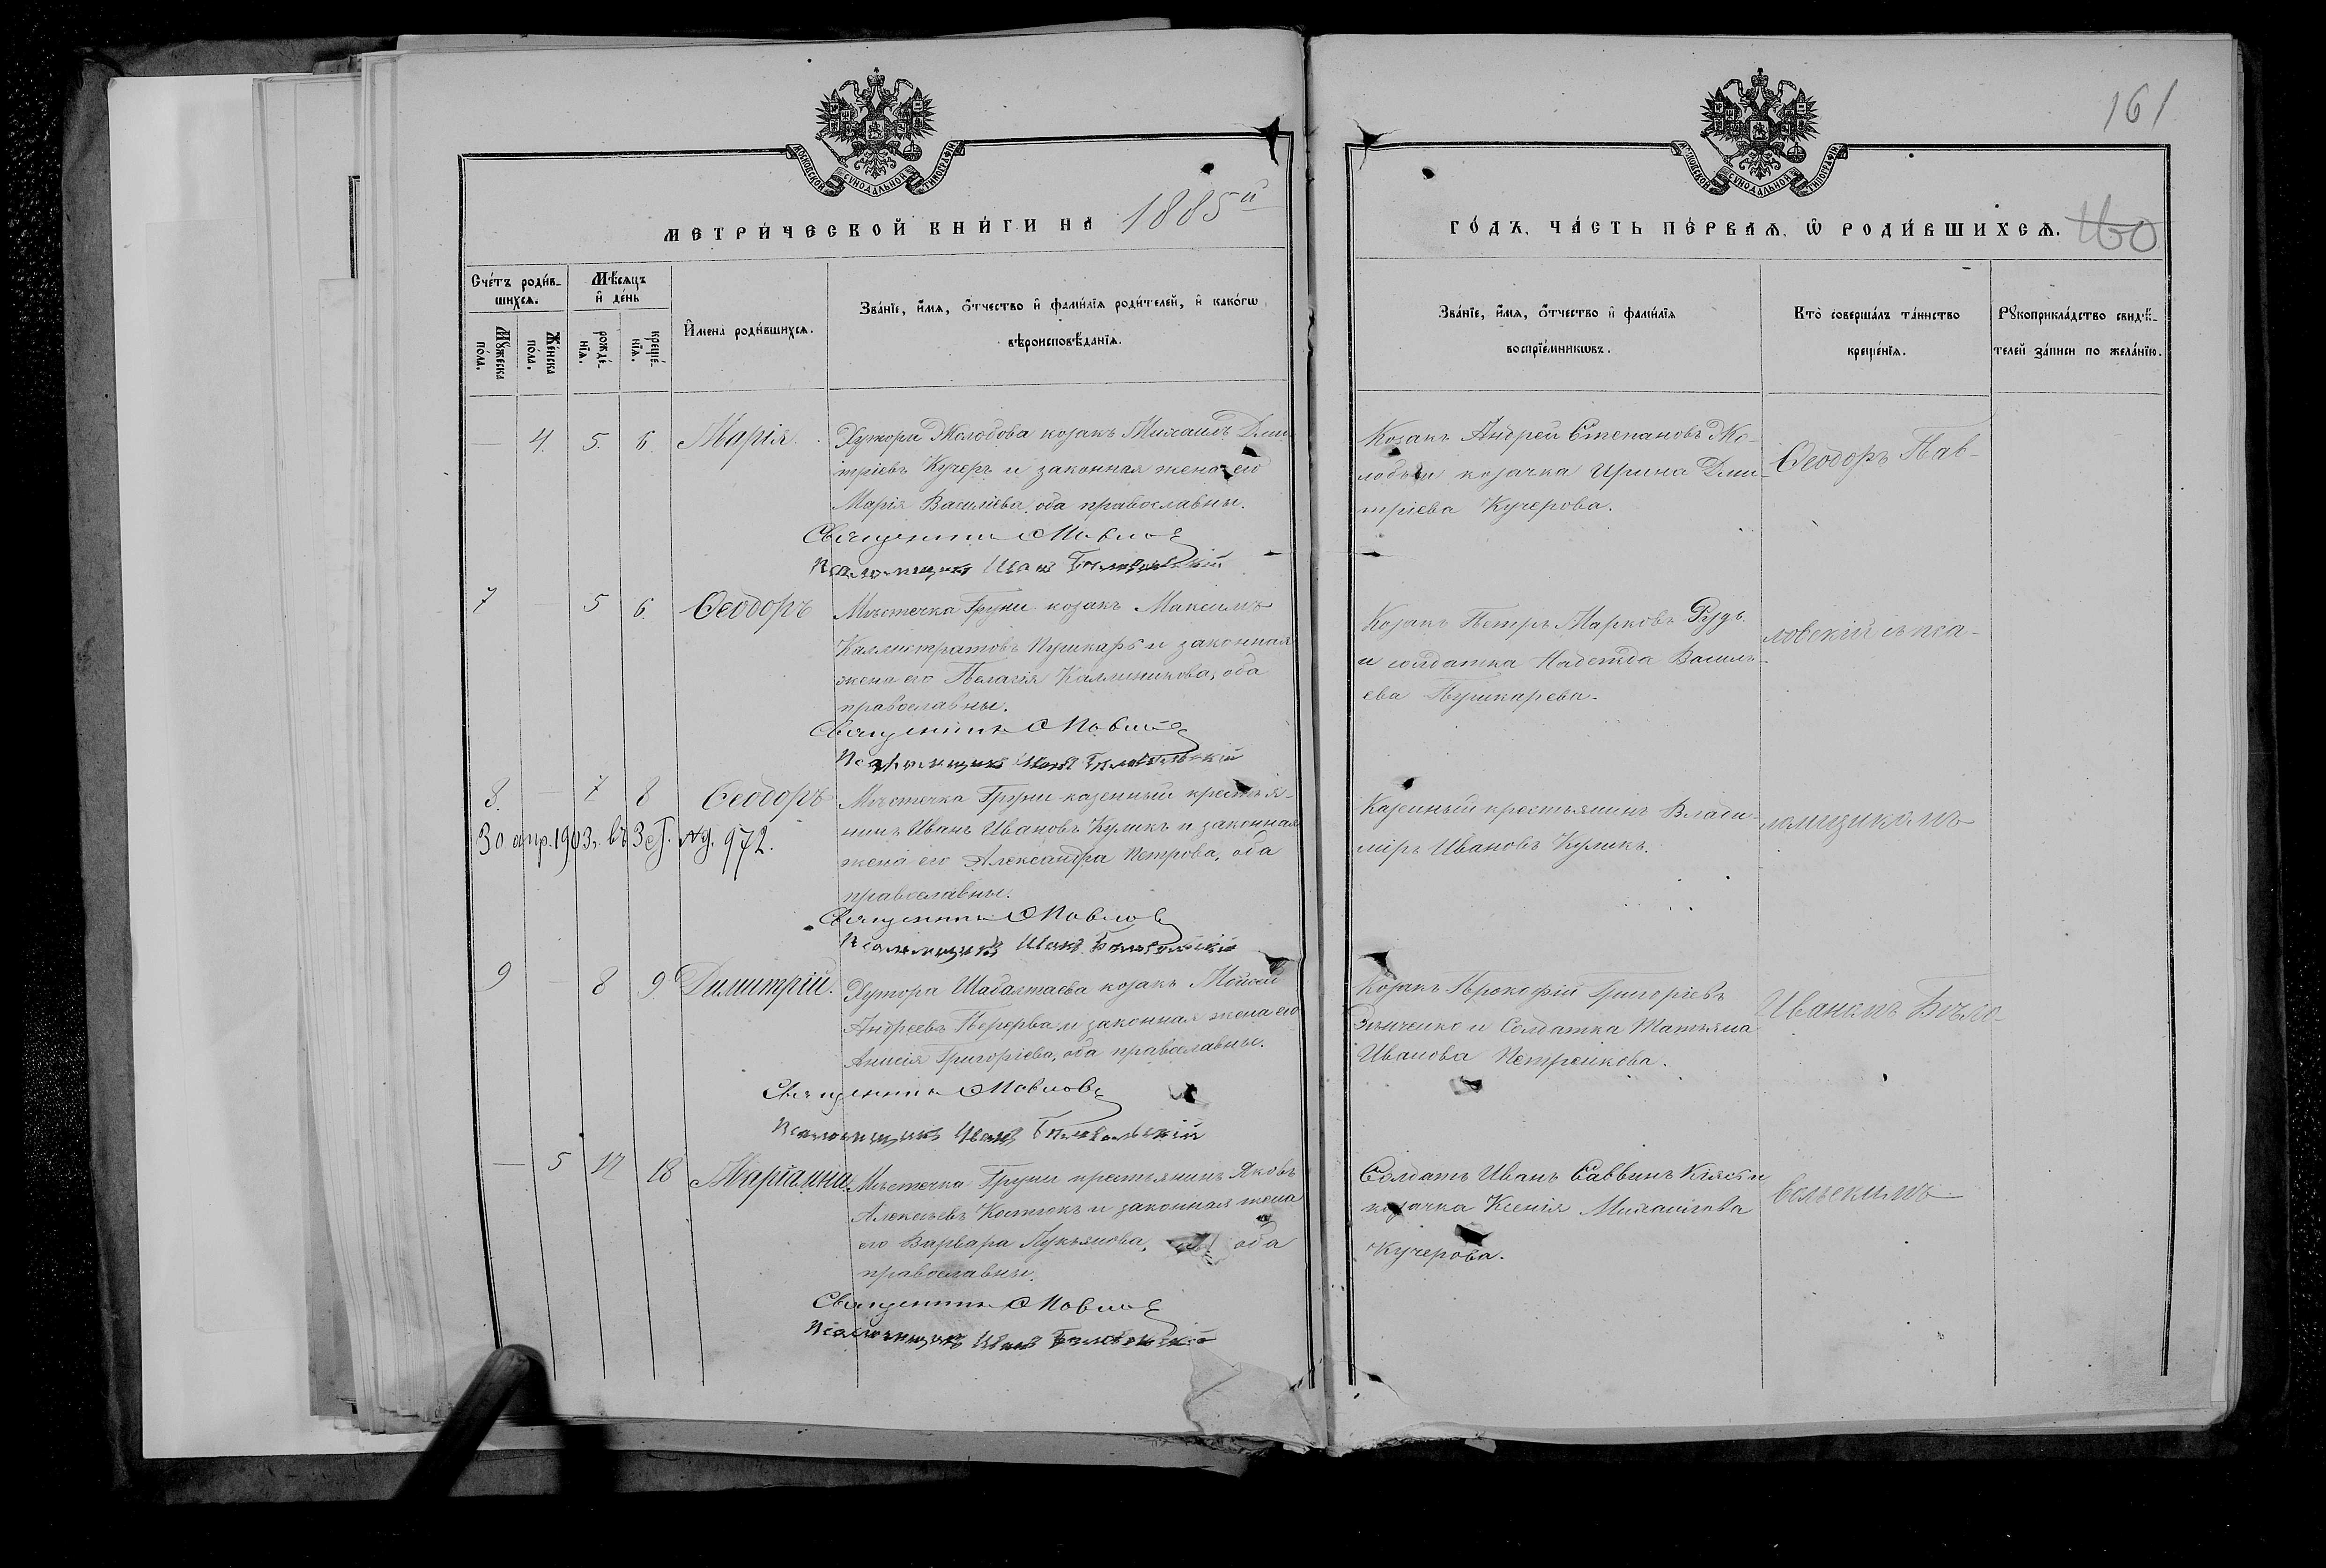 161
МОСКОВСКОЙ СУНОДАЛЬНОЙ ТИПОГРАФІИ
МЕТРИ́ЧЕСКОЙ КНИ́ГИ НА 1885й
МОСКОВСКОЙ СУНОДАЛЬНОЙ ТИПОГРАФІИ
ГО́ДЪ, ЧА́СТЬ ПЕ́РВАЯ, Ѿ РОДИ́ВШИХСЯ. 160
Сче́тъ роди́в-
шихся.
Мꙋжеска
по́ла.
Же́нска
по́ла.
Мѣ́сяцъ
и де́нь
рожде́-
нїя.
креще́-
нїя.
И҆мена̀ роди́вшихся.
Зва́нїе, и҆́мя, ѻ҆́тчество и҆ фами́лїя роди́телей, и҆ како́гѡ
вѣроисповѣ́данїя.
Зва́нїе, и҆́мя, ѻ҆́тчество и҆ фами́лїя
воспрїе́мникѡвъ.
Кто̀ соверша́лъ та́инство
креще́нїя.
Рꙋкоприкла́дство свидѣ́-
телей за́писи по жела́нїю.
— 4. 5. 6. Марія.
Хутора Молодова козакъ Михаилъ Дми
тріевъ Кучеръ и законная жена его
Марія Василіева, оба православны.
Священникъ Павлов
Псаломщикъ Иванъ
Козакъ Андрей Степановъ Мо-
лодый и козачка Ирина Дми-
тріева Кучерова.
Ѳеодоръ Пав-
7 — 5 6. Ѳеодоръ
Мѣстечка Груни козакъ Максимъ
Каллистратовъ Пушкарь и законная
жена его Пелагія Каллиникова, оба
православны.
Священникъ Павлов
Псаломщикъ Иванъ
Козакъ Петръ Марковъ Рудь
и солдатка Надежда Василь-
ева Пушкарева.
ловскій съ пса-
8. — 7 8 Ѳеодоръ
30 апр. 1903 г. въ 3 сП. № 972.
Мѣстечка Груни казенный крестья-
нинъ Иванъ Ивановъ Куликъ и законная
жена его Александра Петрова, оба
православны.
Священникъ Павлов
Псаломщикъ Иванъ
Казенный крестьянинъ Влади-
міръ Ивановъ Куликъ.
ломщикомъ
9 — 8 9. Димитрій.
Хутора козакъ Моисей
Андреевъ Перерва и законная жена его
Анисія Григоріева, оба православны.
Священникъ Павловъ
Псаломщикъ Иванъ
Козакъ Прокофій Григоріевъ
Зѣнченко и Солдатка Татьяна
Иванова Петренкова.
Иваномъ Бѣло-
— 5 17 18 Маріамна
Мѣстечка Груни крестьянинъ Яковъ
Алексѣевъ Костюкъ и законная жена
его Варвара Лукьянова, оба
православны.
Священникъ Павлов
Псаломщикъ Иванъ
Солдатъ Иванъ Саввинъ и
козачка Ксенія Михаилова
Кучерова.
вольскимъ